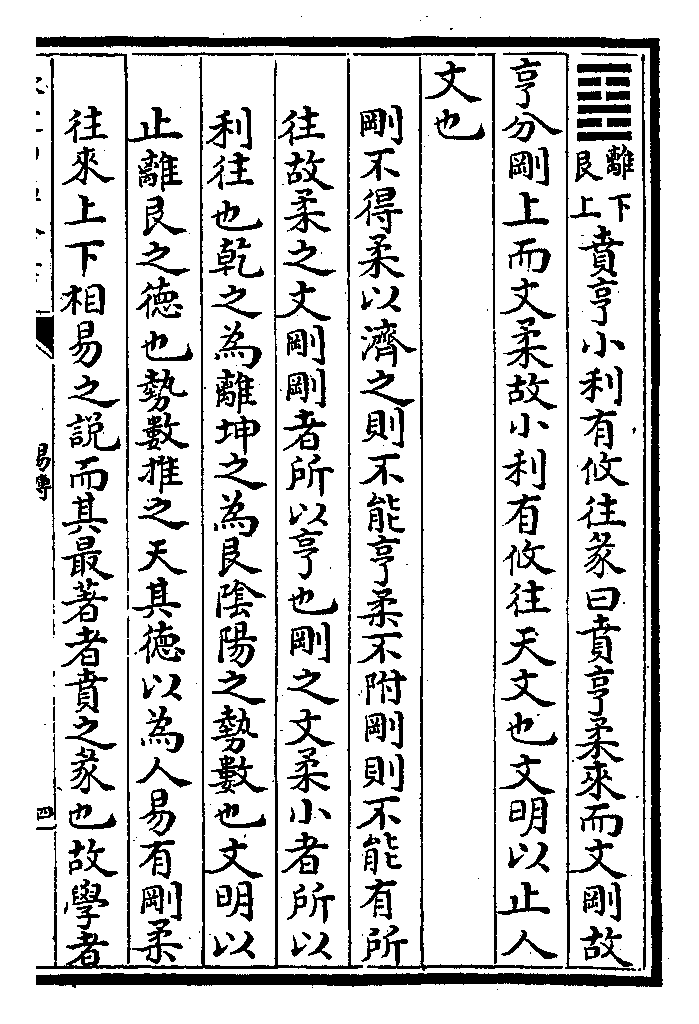 ䷕離下艮上賁亨小利有攸往彖曰賁亨柔來而文剛故
亨分剛上而文柔故小利有攸往天文也文明以止人
文也
剛不得柔以濟之則不能亨柔不附剛則不能有所
往故柔之文剛剛者所以亨也剛之文柔小者所以
利往也乾之為離坤之為艮陰陽之勢數也文明以
止離艮之德也勢數推之天其德以為人易有剛柔
往來上下相易之說而其最著者賁之彖也故學者
易傳
四